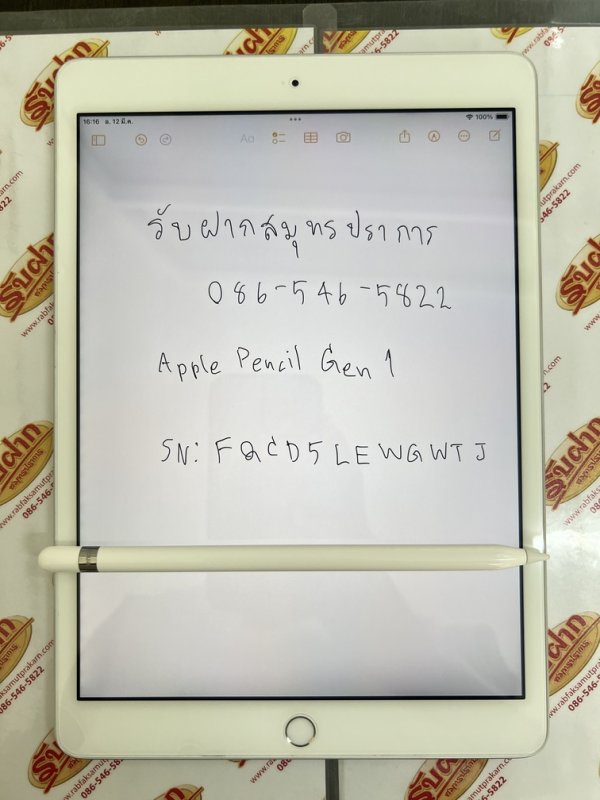 16:16 อ. 12 มี.ค.
100%
Aa
รับฝากสมุทรปราการ
086-546-5822
Apple Pencil Gen 1
SN: FQCD5LEWGWTJ
รับฝาก
สมุทรปราการ
www.rabfaksamutprakarn.com
086-546-5822